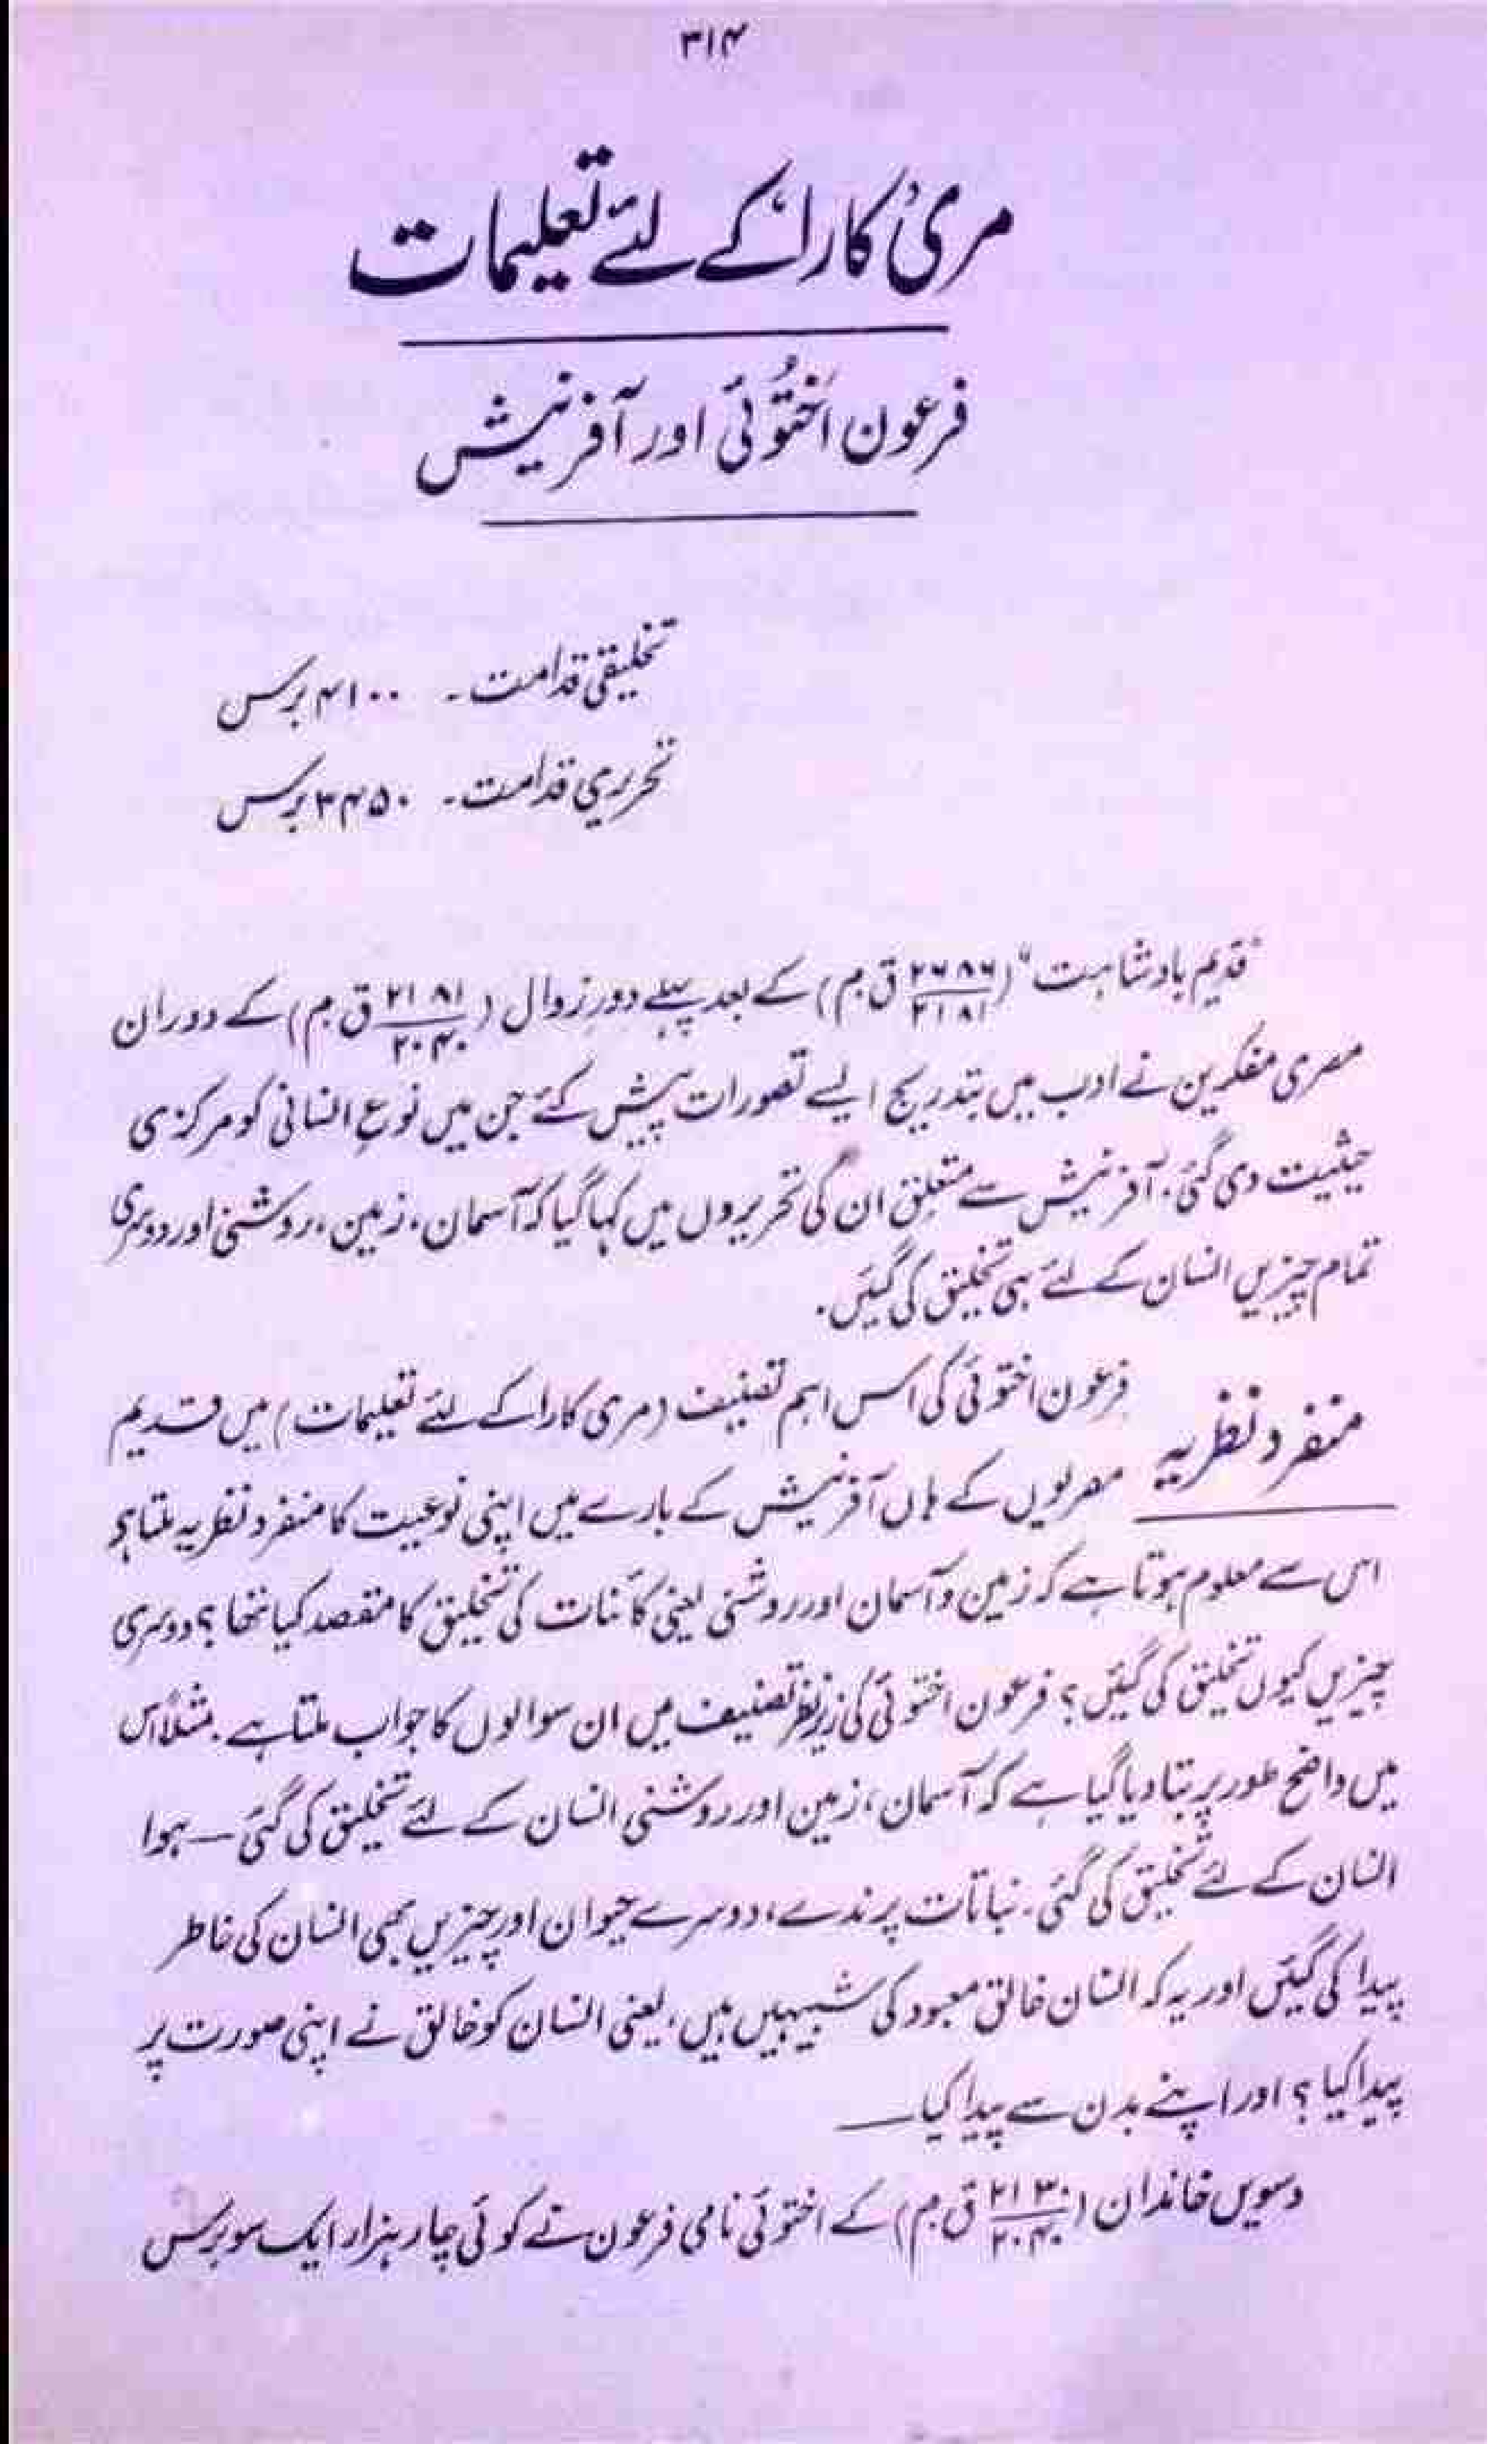 ۳۱۴
مریٔ کارا کے لئے تعلیمات
فرعون اَختُوئی اور آفرنیش
تخلیقی قدامت۔ ۴۱۰۰ برس
تحریری قدامت۔ ۳۴۵۰ برس
"قدیم بادشاہت" (۲۶۸۶/۲۱۸۱ ق م) کے بعد پہلے دورِ زوال (۲۱۸۱/۲۰۴۰ ق م) کے دوران
مصری مفکرین نے ادب میں بتدریج ایسے تصورات پیش کئے جن میں نوعِ انسانی کو مرکزی
حیثیت دی گئی۔ آفرنیش سے متعلق ان کی تحریروں میں کہا گیا کہ آسمان، زمین، روشنی اور دوسری
تمام چیزیں انسان کے لئے ہی تخلیق کی گئیں۔
منفرد نظریہ فرعون اختوئی کی اس اہم تصنیف (مری کارا کے لئے تعلیمات) میں قدیم
مصریوں کے ہاں آفرنیش کے بارے میں اپنی نوعیت کا منفرد نظریہ ملتا ہے
اس سے معلوم ہوتا ہے کہ زمین و آسمان اور روشنی یعنی کائنات کی تخلیق کا مقصد کیا تھا؟ دوسری
چیزیں کیوں تخلیق کی گئیں؟ فرعون اختوئی کی زیرِ نظر تصنیف میں ان سوالوں کا جواب ملتا ہے۔ مثلاً اس
میں واضح طور پر بتا دیا گیا ہے کہ آسمان، زمین اور روشنی انسان کے لئے تخلیق کی گئی — ہوا
انسان کے لئے تخلیق کی گئی۔ نباتات پرندے، دوسرے حیوان اور چیزیں بھی انسان کی خاطر
پیدا کی گئیں اور یہ کہ انسان خالق معبود کی شبیہیں ہیں، یعنی انسان کو خالق نے اپنی صورت پر
پیدا کیا؟ اور اپنے بدن سے پیدا کیا —
دسویں خاندان (۲۱۳۰/۲۰۴۰ ق م) کے اختوئی نامی فرعون نے کوئی چار ہزار ایک سو برس